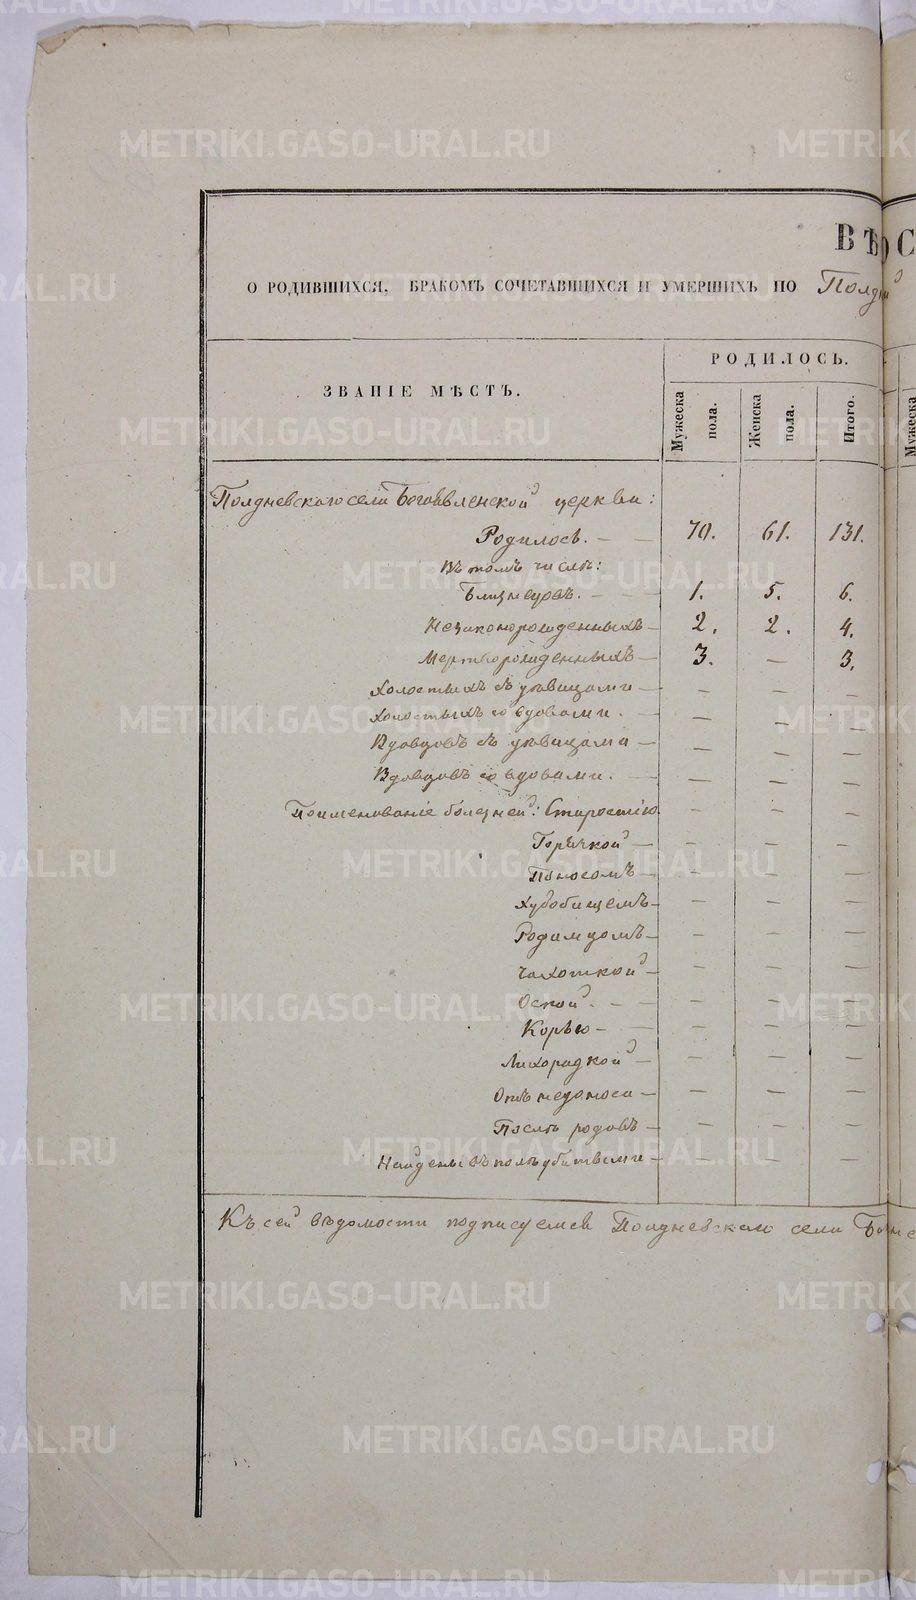 ВѢДОС
О РОДИВШИХСЯ, БРАКОМЪ СОЧЕТАВШИХСЯ И УМЕРШИХЪ ПО Полдн
ЗВАНІЕ МѢСТЪ.
РОДИЛОСЬ.
Мужеска пола.
Женска пола.
Итого.
Мужеска
Полдневскаго села Богоявленской церкви:
Родилось. — — 70. 61. 131.
Въ томъ числѣ:
Близнецовъ. — — — 1. 5. 6.
Незаконорожденныхъ — 2. 2. 4.
Мертворожденныхъ — 3. — 3.
Холостыхъ съ дѣвицами — — — —
Холостыхъ со вдовами. — — — —
Вдовцовъ съ дѣвицами — — — —
Вдовцовъ со вдовами. — — — —
Поименованіе болѣзней: Старостію — — —
Горячкой — — — —
Поносомъ — — — —
Худобищемъ — — — —
Родимцомъ — — — —
Чахоткой — — — —
Оспой. — — — — —
Корью — — — — —
Лихорадкой — — — —
Отъ недоноса — — — —
Послѣ родовъ — — — —
Найдены въ полѣ убитыми — — — —
Къ сей вѣдомости подписуемся Полдневскаго села
METRIKI.GASO-URAL.RU